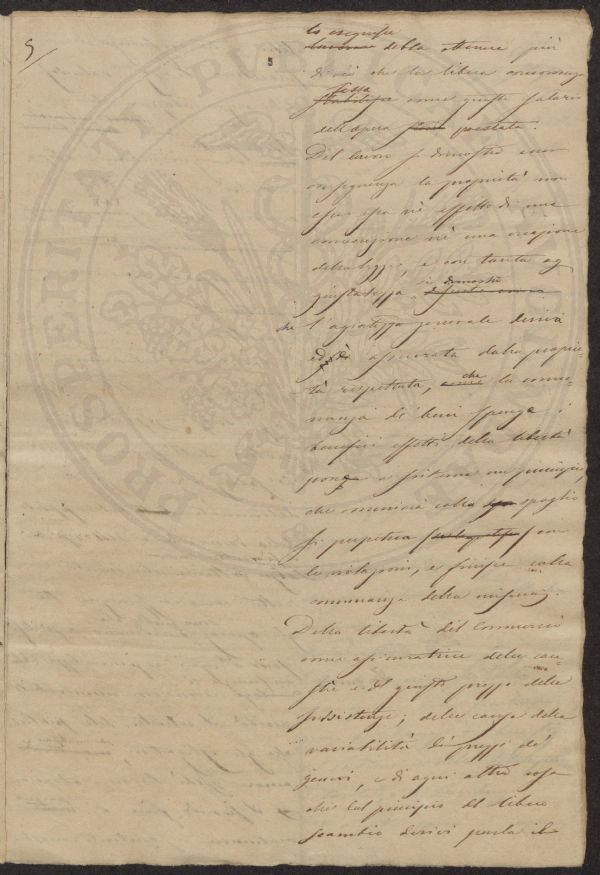 5
lo eseguisce
lavoro debba ottenere più
di ciò che la libera concorrenza
fissa
stabilisce come giusto salario
dell'opera prestata.
Del lavoro si dimostrò come
conseguenza la proprietà non
essere essa nè effetto di una
convenzione nè una creazione
della legge, e con tanta ag
giustatezza si dimostrò
che l'agiatezza generale deriva
ed è assicurata dalla proprie-
tà rispettata, che la comu-
nanza de' beni spenga i
benefici effetti della libertà
ponga a sistema un principio,
che comincia colla spoglio
si perpetua con
le violazioni, e finisce colla
comunanza della miseria.
Della libertà del Commercio
come assicuratrice delle
sussistenze; delle cause della
variabilità di prezzo de'
generi, e di ogni altra cosa
che dal principio del libero
scambio derivi parla il
PROSPERITATI PUBLICAE